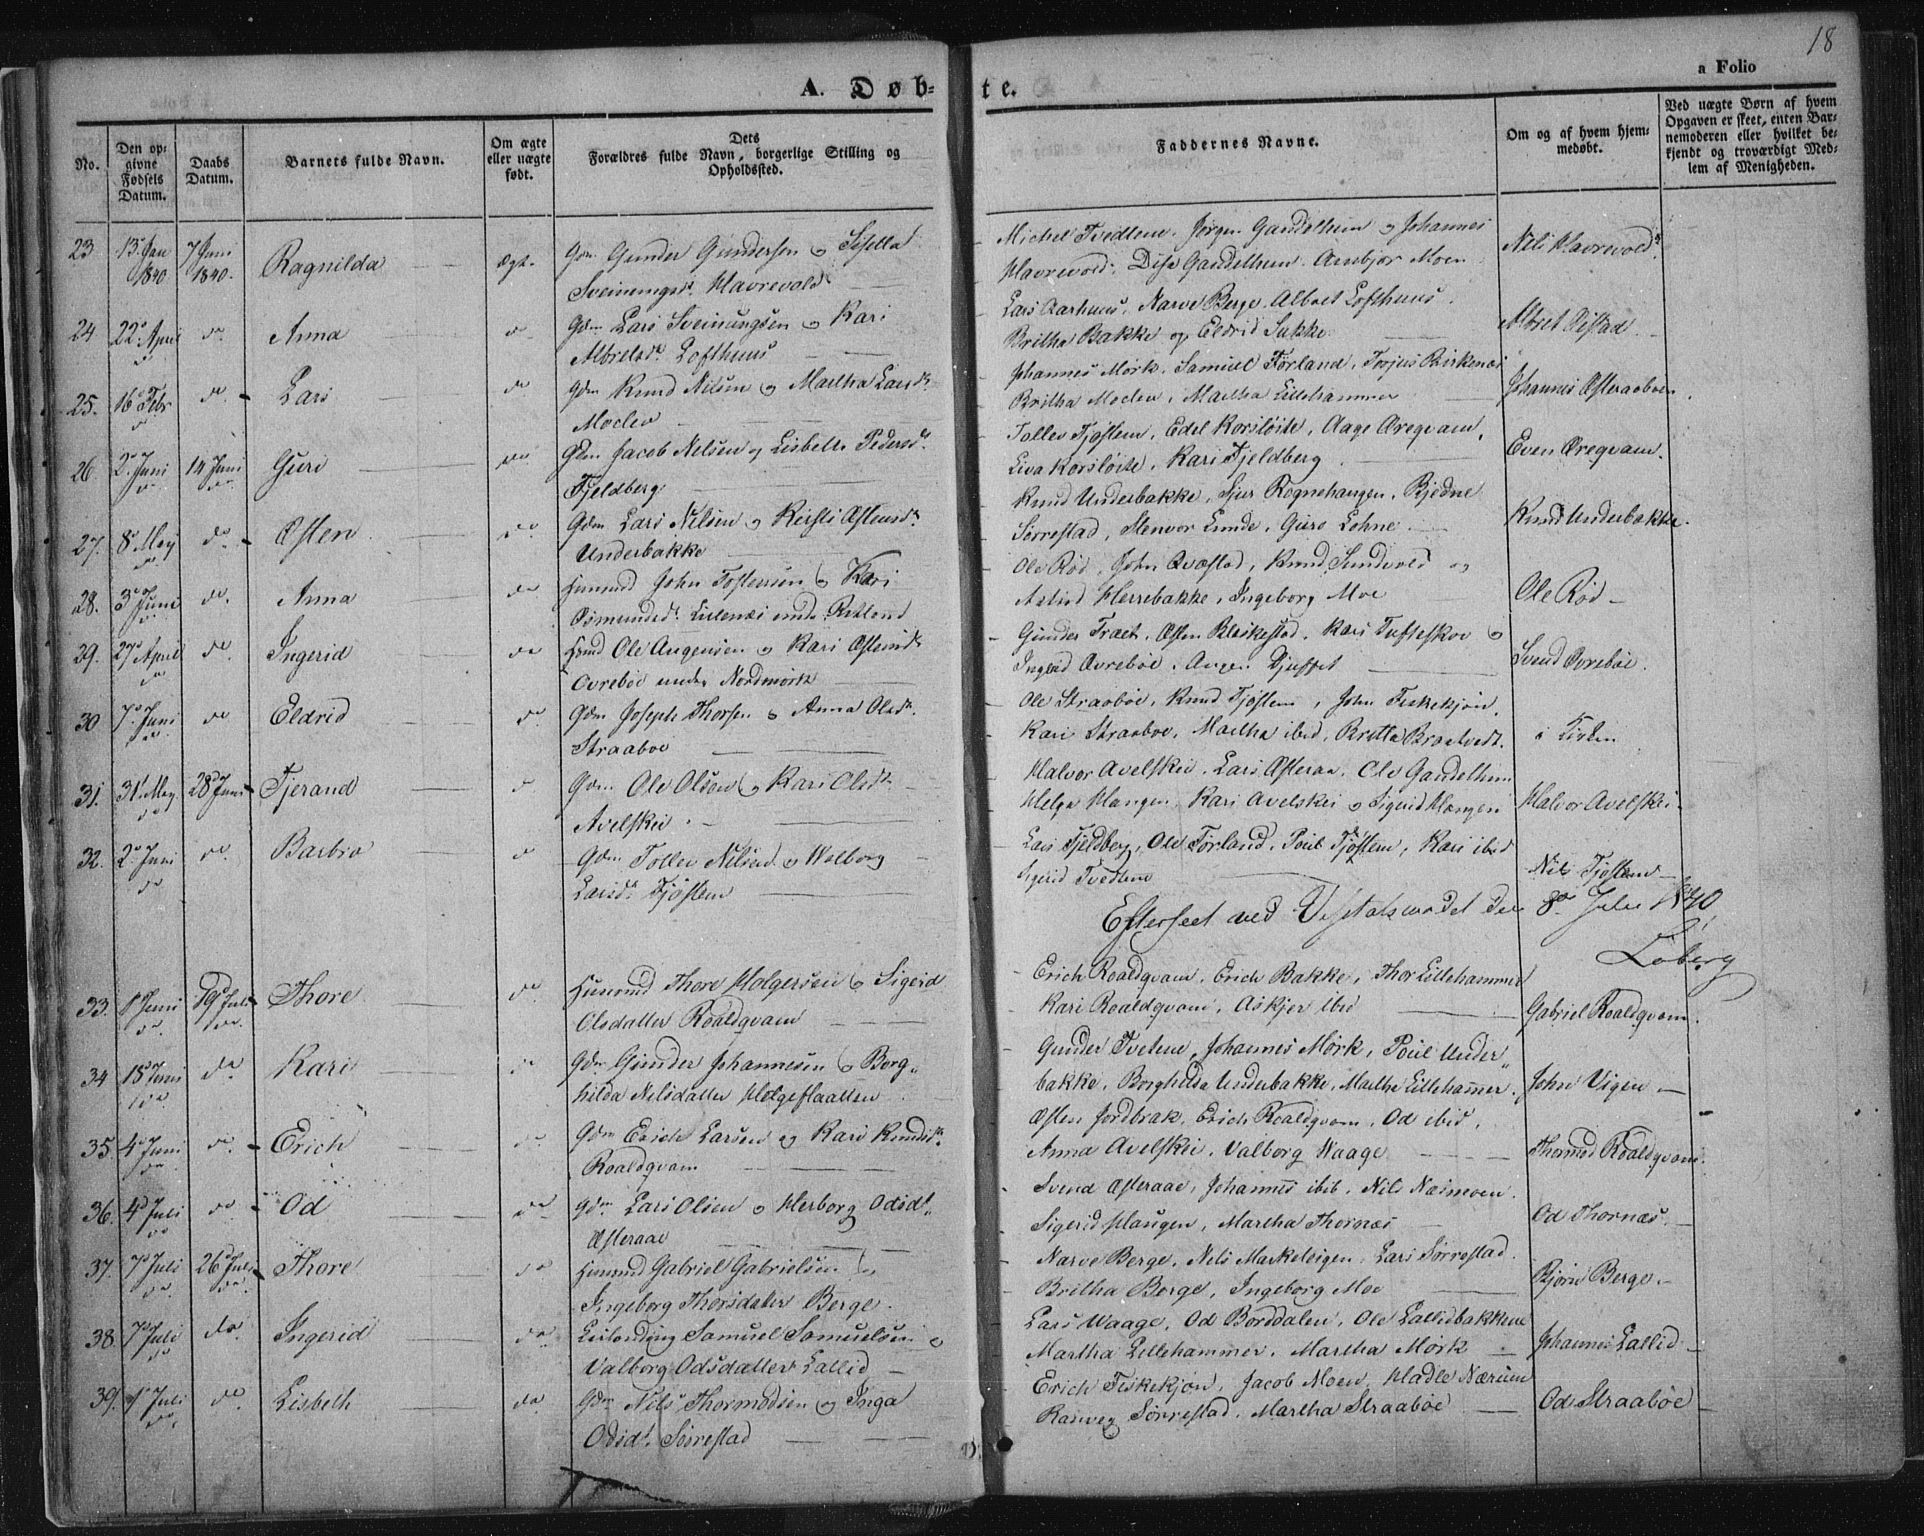 18
A. Døb-
te.
a Folio
No.
Den opgivne Fødsels Datum.
Daabs Datum.
Barnets fulde Navn.
Om ægte eller uægte født.
Dets Forældres fulde Navn, borgerlige Stilling og Opholdssted.
Faddernes Navne.
Om og af hvem hjemmedøbt.
Ved uægte Børn af hvem Opgaven er skeet, enten Barnemoderen eller hvilket bekjendt og troværdigt Medlem af Menigheden.
23 13 Jan 1840 7 Juni 1840. Ragnilda ægt. Gdm Gunder Gundersen o Sisella
Sveinungsd. Havrevold
Michel Tvedten. Jørgen Gandelhem o Johannes
Havrevold. Dise Gandelhem. Ambjor Moen
Nils Havrevold.
24 22 April do. Anna do Gdm Lars Sveinungsen o Kari
Albretsd. Lofthuus
Lars Aarhuus. Narve Berge. Albret Lofthuus.
Britha Bakke og Eldrid Sukke
25. 16 Febr do. Lars do Gdm Knud Nilsen o Martha Larsd.
Moclev
Johannes Mørk. Samuel Førland. Torjus Birkenæs
Britha Moclev. Martha Lillehammer
Johannes Østeraaboen.
26. 2 Juni 14 Juni Guri do Gdm Jacob Nelsen og Lisbeth Pedersd.
Fjeldberg.
Tollev Tjøstem, Edel Korsløite. Aage Øregvam.
Liva Korsløite. Kari Fjeldberg
Even Øregvam.
27. 8 May do. Østen do Gdm Lars Nilsen o Kirsti Østensd.
Underbakke
Knud Underbakke. Sjur Rognehaugen. Bjedne
Sørrestad, Stenvor Lunde. Guro Lohne
Knud Underbakke.
28. 3 Juni do. Anna do Huusmd John Tostensen o Kari
Osmundsd. Lilenæs under
Ole Rød. John Qvæstad. Knud Sundvold og
Astrid Herrebakke. Ingeborg Moe
Ole Rød
29. 27 April do Ingerid do Hmd Ole Augensen o Kari Østensd.
Ovrebøe under Nordmørk
Gunder Træet. Østen Bleskestad. Kari Tufteskov o
Ingerid Ovrebøe. Augen
Svend Ovrebøe.
30 7 Juni do Eldrid do Gdm Joseph Thorsen o Anna Olsd.
Straaboe
Ole Straabøe. Knud Tjøstem, John Fiskekjøn.
Kari Straaboe. Martha ibid. Britta Braatvedt.
i Kirken
31. 31 May 28 Juni Tjerand do Gdm Ole Olsen o Kari Olsd.
Avelskei.
Halvor Avelskei. Lars Østeraa. Ole Gandelhem
Helga Haugen. Kari Avelskei o Sigrid Haugen
Halvor Avelskei
32. 2 Juni do. Barbro do Gdm Tollev Nilsen o Walborg
Larsd. Tjøstem
Lars Fjeldberg, Ole Førland. Poul Tjøstem. Kari ibid
Sigrid Tvedten
Nils Tjøstem
Efterseet ved Visitatsmødet den 8de Julii 1840
Løberg
33. 1 Juni 19 Juli Thore do. Huusmd Thore Holgersen o Sigrid
Olsdatter Roaldqvam
Erich Roaldqvam, Erich Bakke, Thor Lillehammer
Kari Roaldqvam, Askjer ibid
Gabriel Roaldqvam.
34 18 Juni do Kari do Gdm Gunder Johannesen o Borg-
hilda Nelsdatter Helgeflaatten
Gunder Tvetene, Johannes Mørk, Poul Under-
bakke, Borghilda Underbakke, Martha Lillehammer.
John Vigen
35. 4 Juni do Erich do. Gdm Erich Larsen og Kari Knudsd.
Roaldqvam
Østen Jordbræk. Erich Roaldqvam. Od ibid.
Anna Avelskei. Valborg Waage
Thormod Roaldqvam.
36. 4 Juli do Od do Gdm Lars Olsen o Herborg Odsd.
Østeraae
Svend Østeraae, Johannes ibib. Nils Næsmoen.
Sigerid Haugen, Martha Thornæs
Od Thornæs.
37. 7 Juli 26 Juli Thore do Huusmd Gabriel Gabrielsen o
Ingeborg Thorsdatter Berge.
Narve Berge. Nels Markeleigen. Lars Sørrestad.
Britha Berge, Ingeborg Moe
Bjørn Berge.
38. 7 Juli do. Ingerid do. Leilending Samuel Samuelsen o
Valborg Odsdatter Lallid
Lars Waage. Od Borddalen. Ole Lallidbakken
Martha Lillehammer. Martha Mørk
Johannes Lallid
39. Juli do. Lisbeth do. Gdm Nels Thormodsen og Inga
Odsd. Sørrestad
Erich Fiskekjøn. Jacob Moen. Hadle Nærum
Ranveg Sørrestad. Martha Straabøe
Od Straabøe